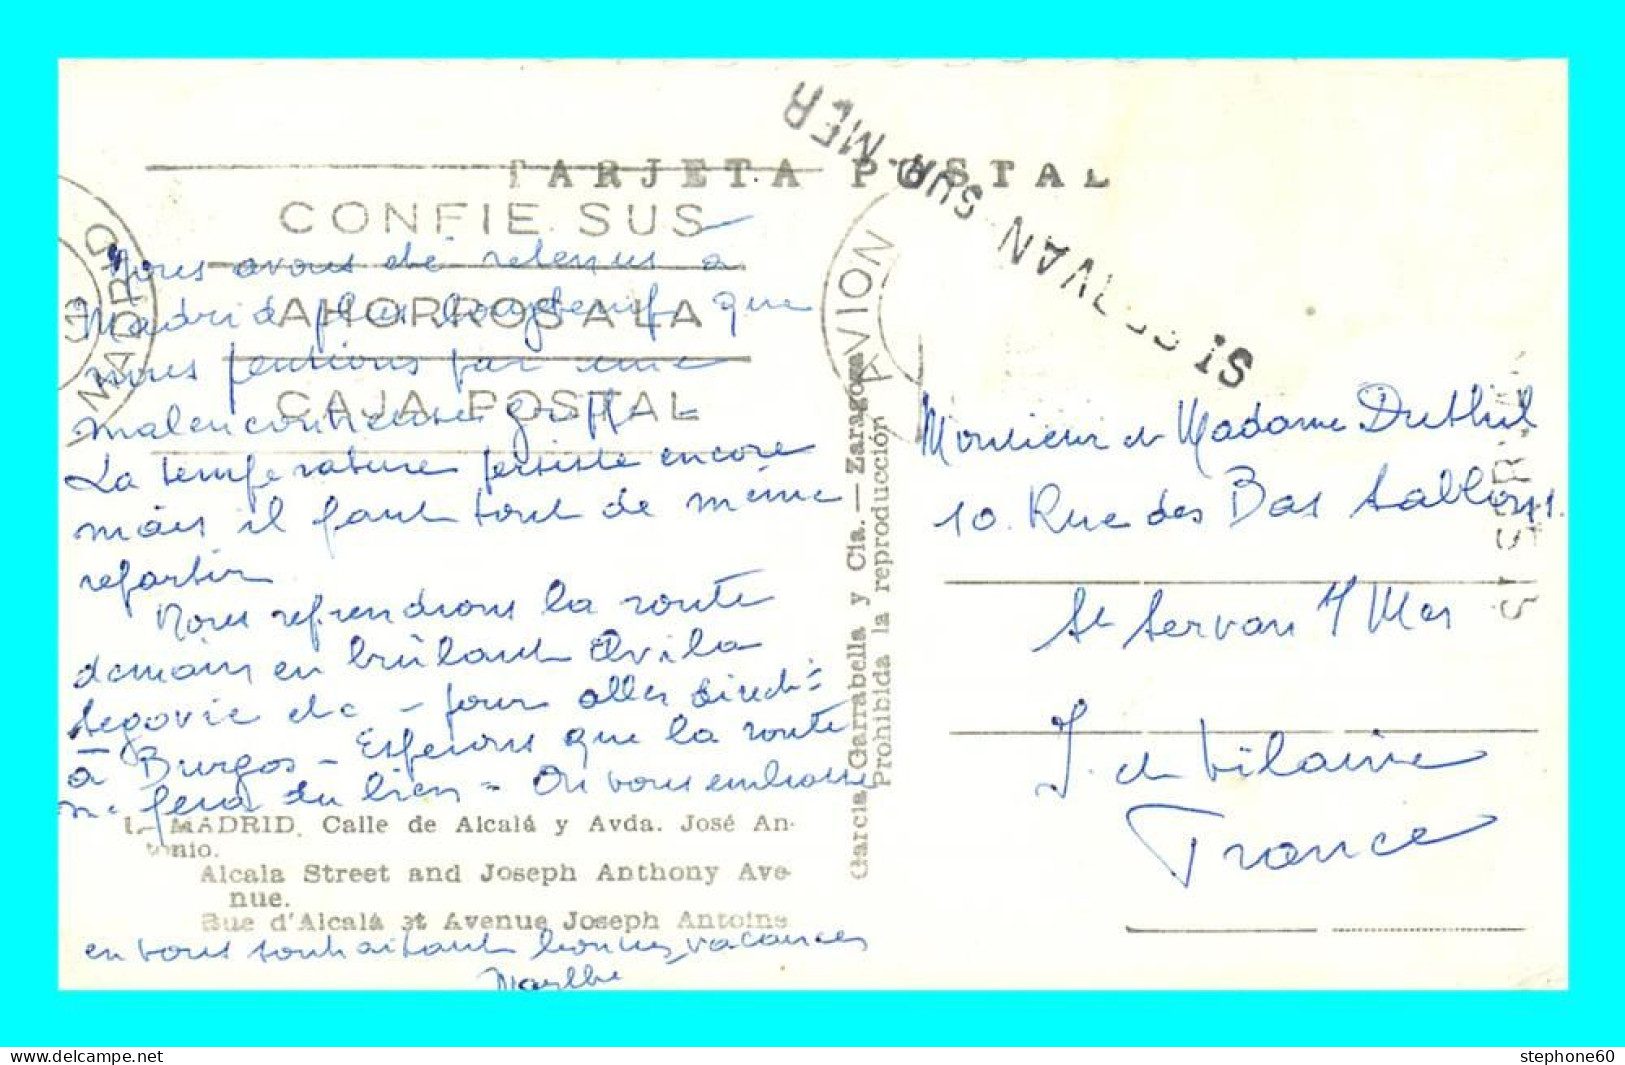 TARJETA POSTAL
CONFIE SUS
AHORROS A LA
CAJA POSTAL
MADRID
AVION
ST SERVAN SUR MER
Nous avons été retenus à
Madrid plus longtemps que
nous pensions par une
malencontreuse grippe -
La température persiste encore
mais il faut tout de même
repartir
Nous reprendrons la route
demain en brûlant Avila
Segovie etc - pour aller direct:
à Burgos - Espérons que la route
me fera du bien - On vous embrasse
en vous souhaitant bonnes vacances
Marthe
1.- MADRID. Calle de Alcalá y Avda. José An-
tonio.
Alcala Street and Joseph Anthony Ave-
nue.
Rue d'Alcalá et Avenue Joseph Antoine
Garcia Garrabella y Cia. - Zaragoza
Prohibida la reproducción
Monsieur et Madame Duthil
10. Rue des Bas Sablons.
St Servan s/ Mer
I. et Vilaine
France
stephone60